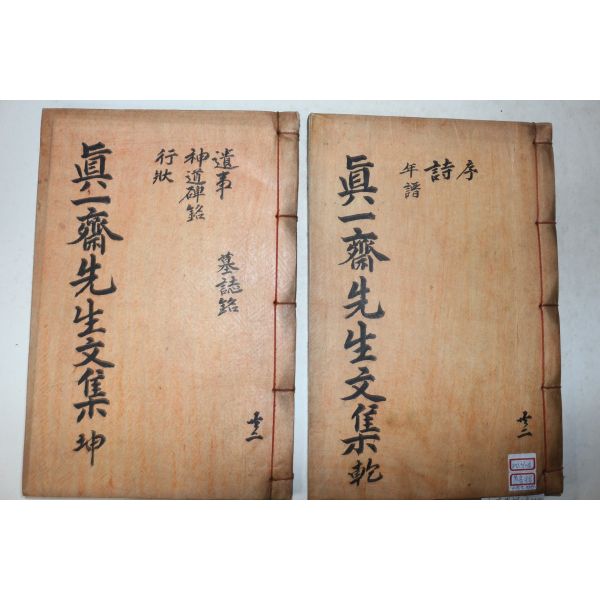 序
詩
年譜
眞一齋先生文集 乾
共二
遺事
神道碑銘
行狀
墓誌銘
眞一齋先生文集 坤
共二